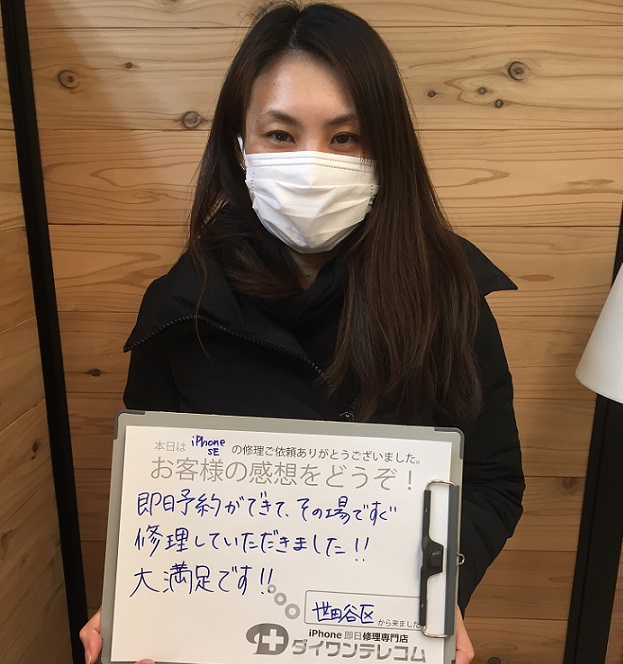 本日は iPhone SE の修理ご依頼ありがとうございました。
お客様の感想をどうぞ！
即日予約ができて、その場ですぐ
修理していただきました!!
大満足です!!
世田谷区 から来ました
iPhone 即日修理専門店
ダイワンテレコム